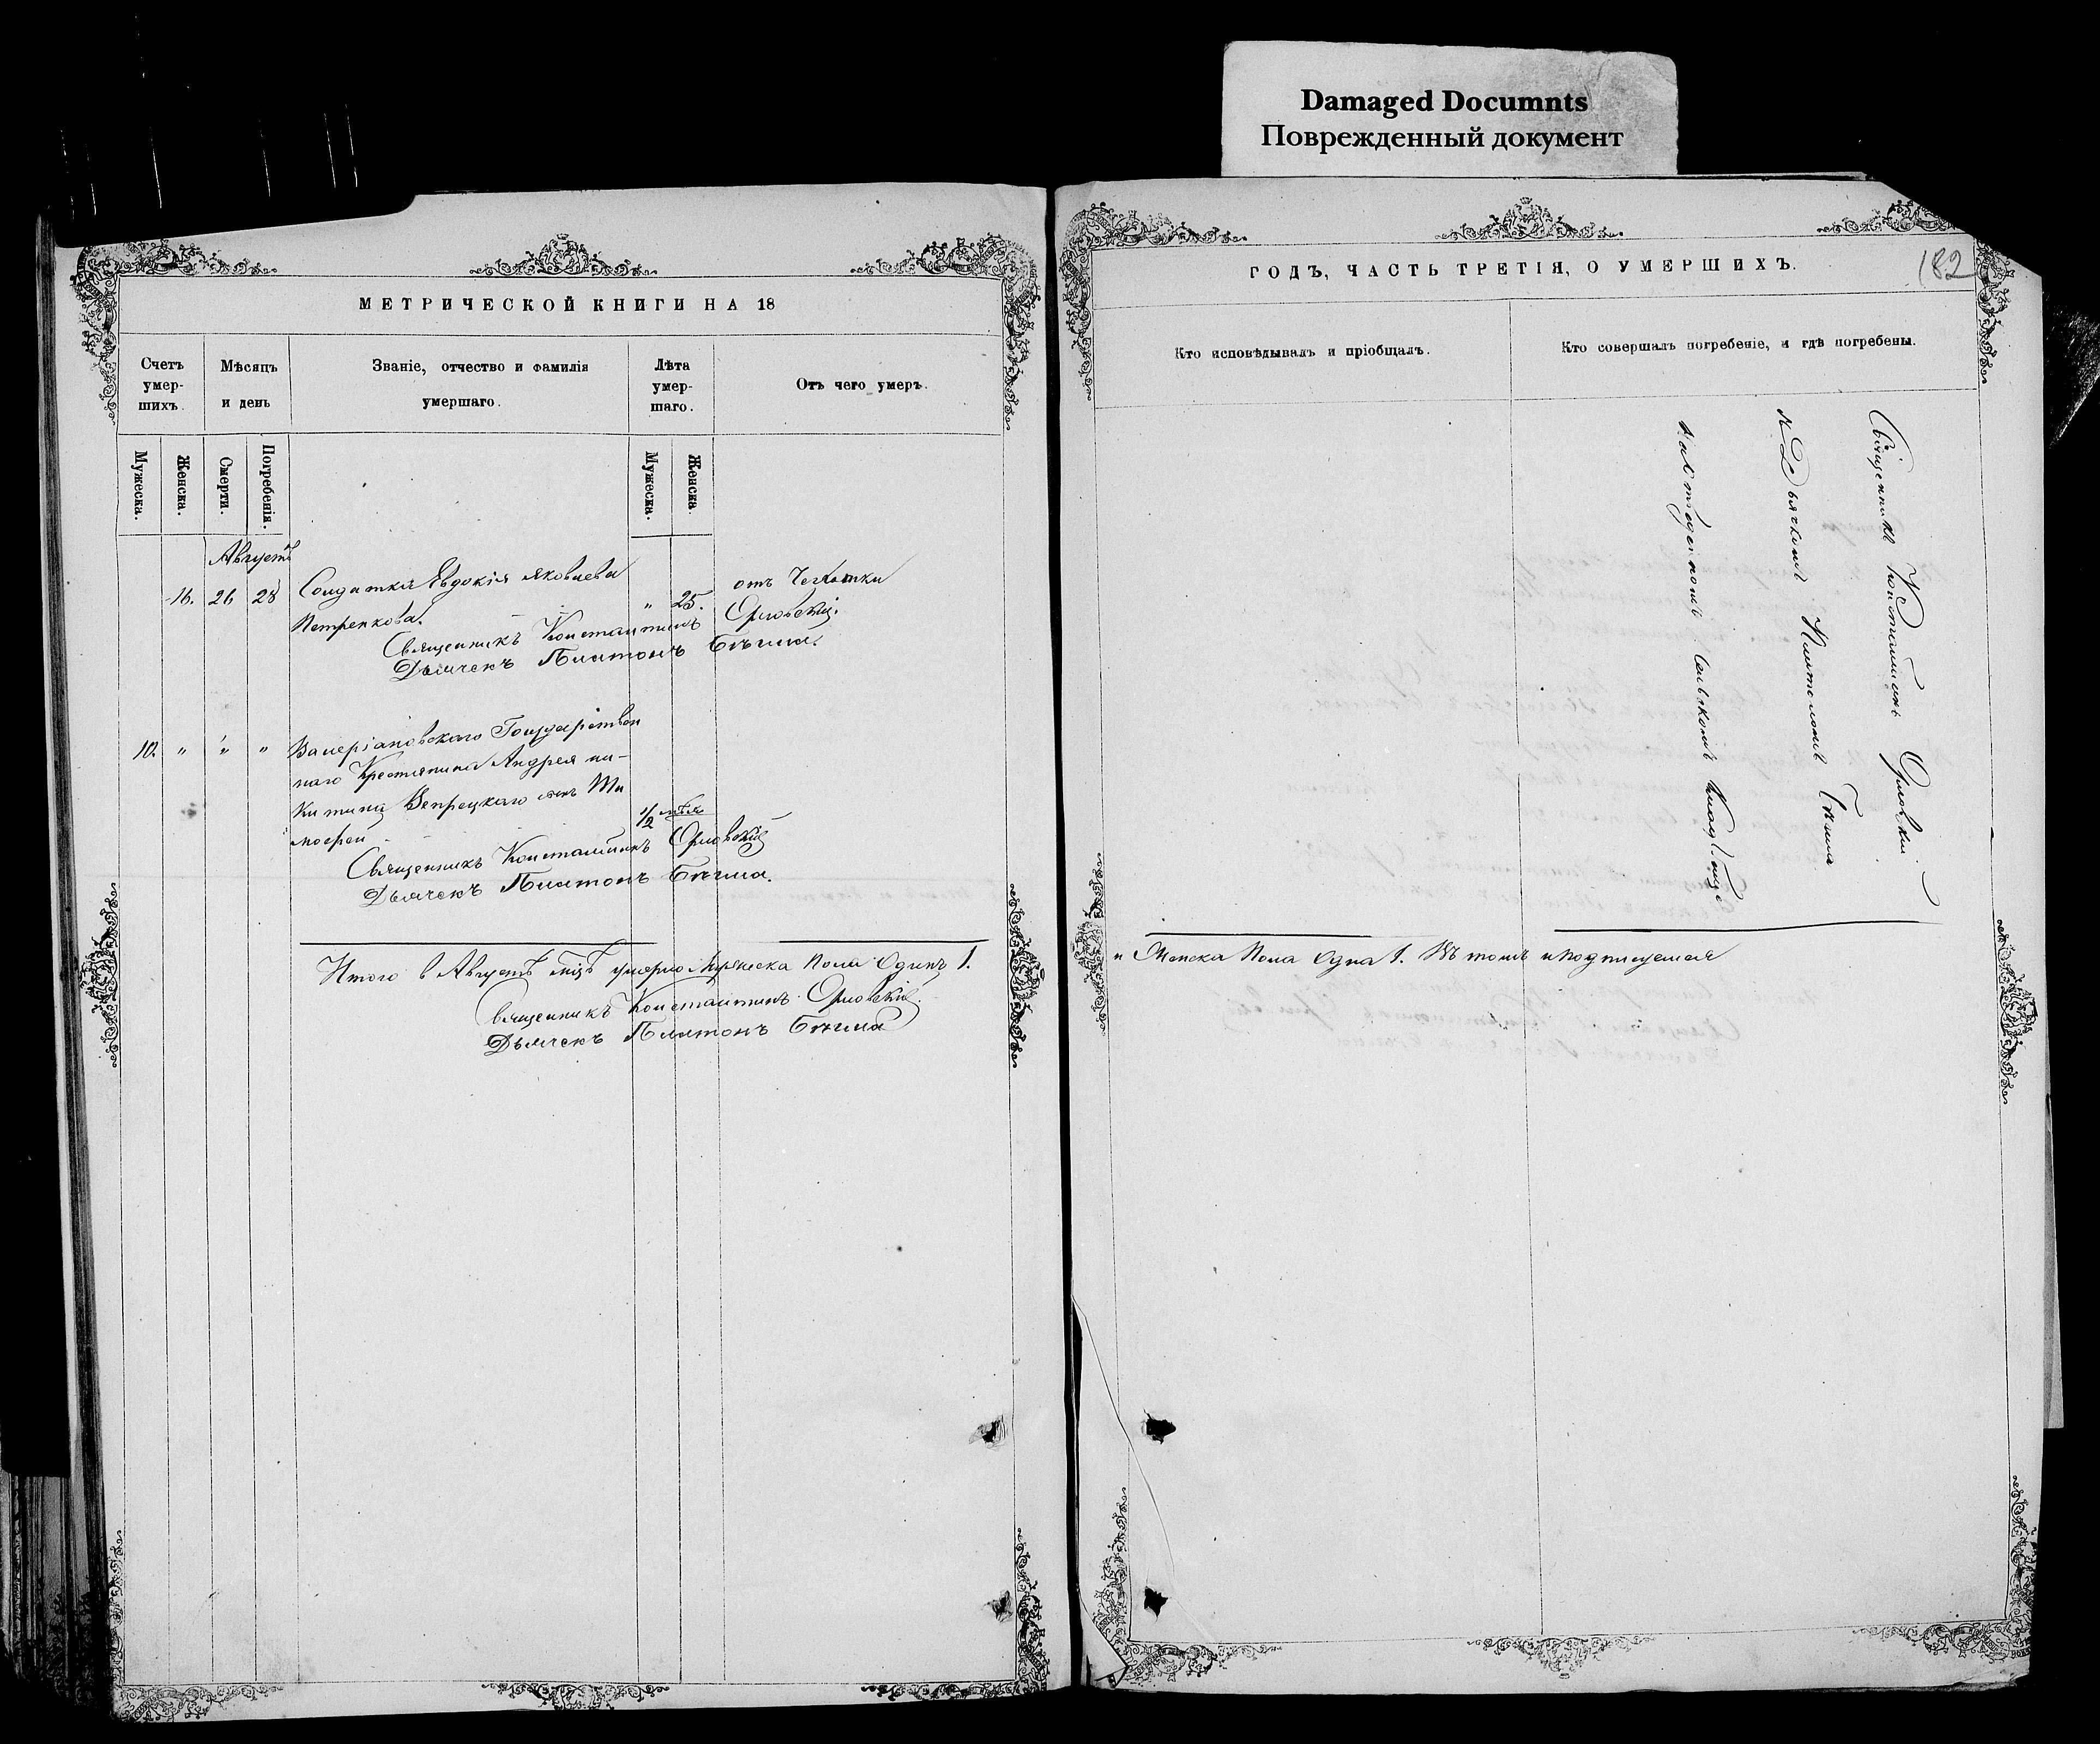 Damaged Documnts
Поврежденный документ
МЕТРИЧЕСКОЙ КНИГИ НА 18
Счетъ умер-шихъ.
Мѣсяцъ и день
Званіе, отчество и фамилія умершаго.
Лѣта умер-шаго.
Отъ чего умеръ.
Мужеска.
Женска.
Смерти.
Погребенія.
Мужеска.
Женска.
Августъ
16. 26 28 Солдатка Евдокія Яковлева " 25. отъ Чехотки
Петренкова.
Священникъ Константинъ Орловскій.
Дьячекъ Платонъ Бѣгма.
10. " " " Валеріановскаго Государствен
наго Крестьянина Андрея Ни-
китина Вепрецкаго сынъ Ти
мофей 1/2
Священникъ Константинъ Орловскій
Дьячекъ Платонъ Бѣгма.
Итого в Августѣ мцѣ умерло Мужеска Пола Одинъ 1.
Священникъ Константинъ Орловскій.
Дьячекъ Платонъ Бѣгма
ГОДЪ, ЧАСТЬ ТРЕТІЯ, О УМЕРШИХЪ.
182
Кто исповѣдывалъ и пріобщалъ.
Кто совершалъ погребеніе, и гдѣ погребены.
Священникъ Константинъ Орловскій
съ Дьячкомъ Платономъ Бѣгма
на
и Женска Пола Одна 1. Въ томъ и подписуемся